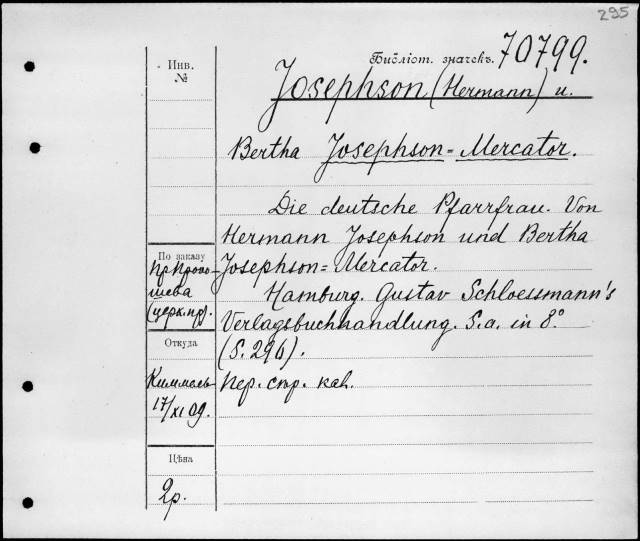 295
Инв.
№
Библіот. значекъ. 70799.
Josephson (Hermann) u.
Bertha Josephson=Mercator.
Die deutsche Pfarrfrau. Von
Hermann Josephson und Bertha
Josephson=Mercator.
Hamburg. Gustav Schloessmann's
Verlagsbuchhandlung. S.a. in 8º
(S. 296).
По заказу
шева
Откуда
Киммель
17/XI 09.
Пер. стр. каб.
Цѣна
2р.